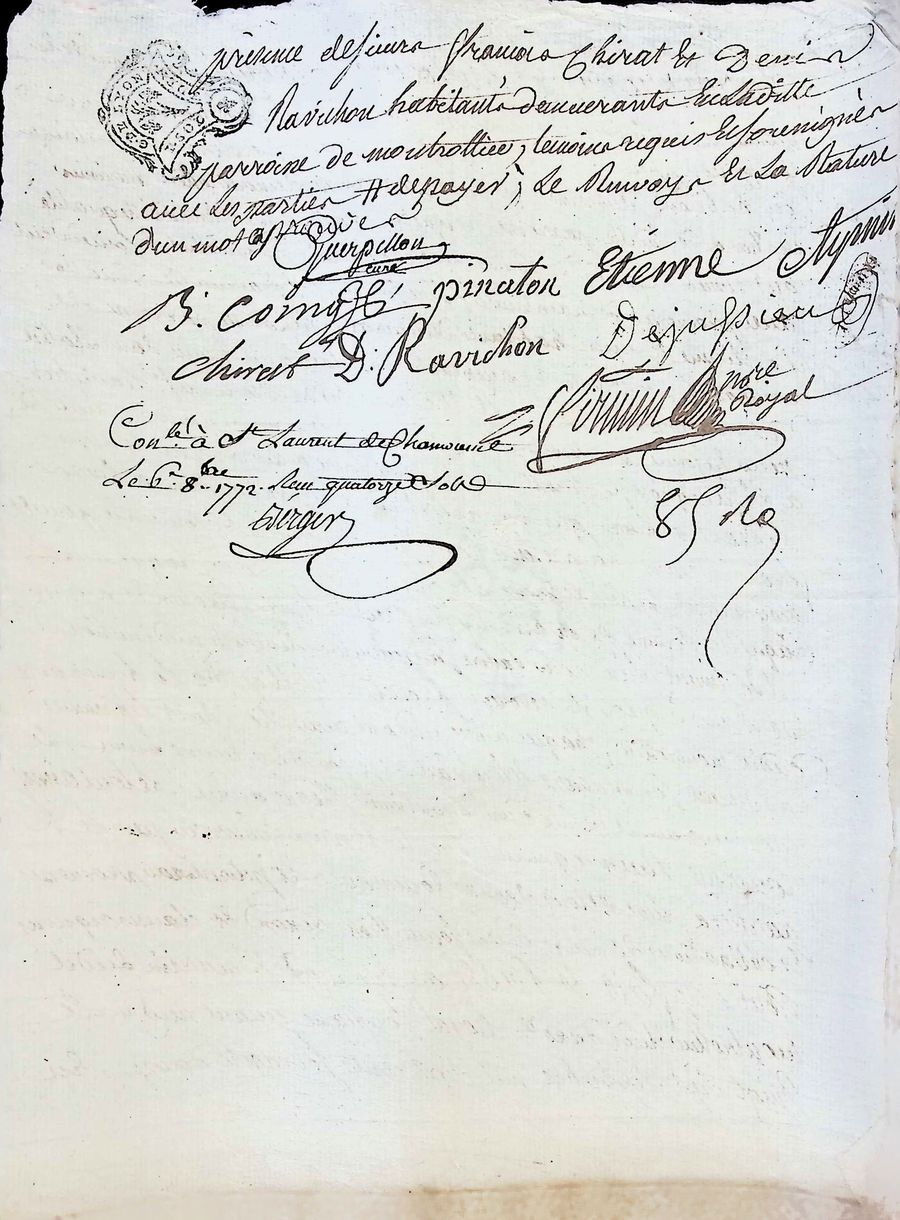 présence de sieurs François Chirat Et Denis
Ravichon habitants demeurants En Laditte
parroisse de montrottier, temoins requis Et soussignés
avec les parties # depayer, Le Renvoys Et La Rature
d'un mot approuvés
Guerpillon
curé
B. Coing pinaton Etienne Aymin
chirat D. Ravichon Dejussieu
Firmin nore
Royal
Con.lé à St Laurent de Chamousset
Le 6e 8bre 1772. Reçu quatorze sols
Berger
85 Ro